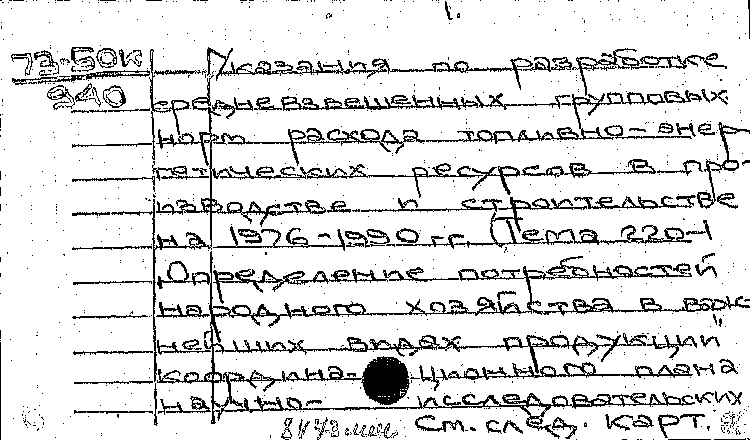 1.
73-50к
940
Указания по разработке
средневзвешенных групповых
норм расхода топливно-энер-
гетических ресурсов в про-
изводстве и строительстве
на 1976-1990 гг. (Тема 220-1
"Определение потребностей
народного хозяйства в важ-
нейших видах продукции"
координа-ционного плана
научно-исследовательских
См. след. карт.